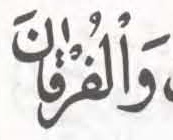 وَٱلْفُرْقَانَ